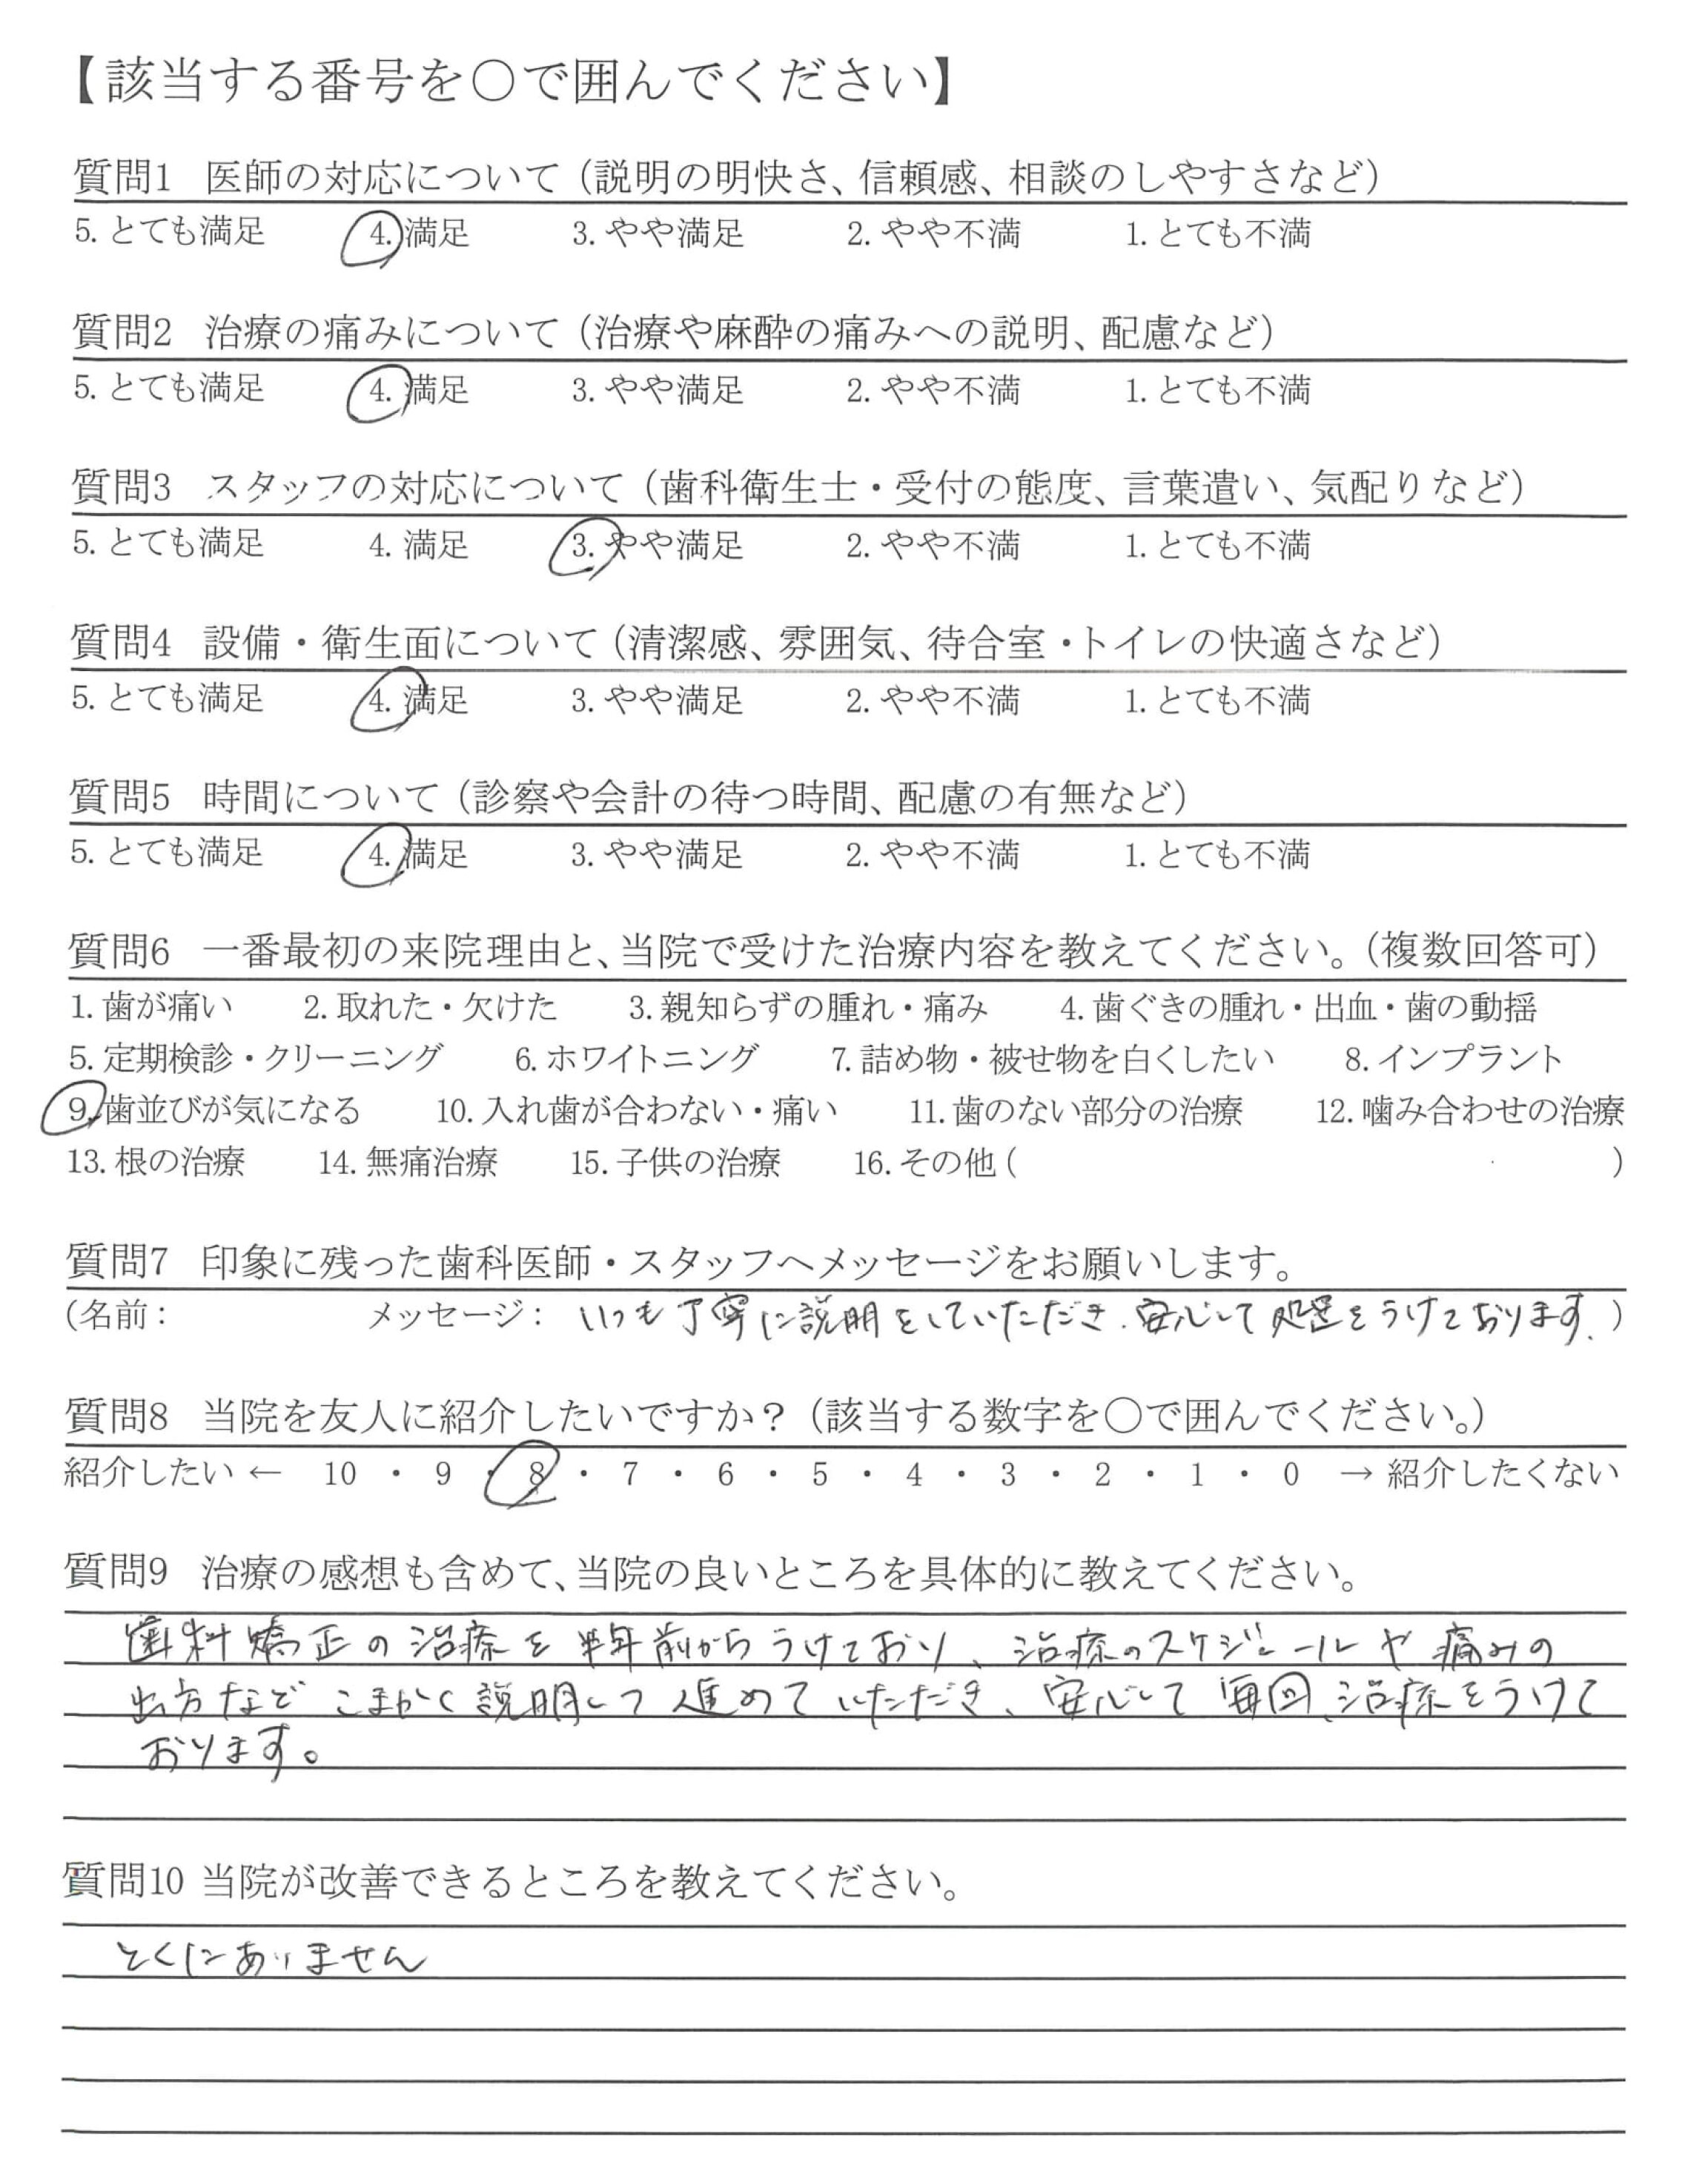 【該当する番号を〇で囲んでください】
質問1 医師の対応について（説明の明快さ、信頼感、相談のしやすさなど）
5. とても満足 4. 満足 3. やや満足 2. やや不満 1. とても不満
質問2 治療の痛みについて（治療や麻酔の痛みへの説明、配慮など）
5. とても満足 4. 満足 3. やや満足 2. やや不満 1. とても不満
質問3 スタッフの対応について（歯科衛生士・受付の態度、言葉遣い、気配りなど）
5. とても満足 4. 満足 3. やや満足 2. やや不満 1. とても不満
質問4 設備・衛生面について（清潔感、雰囲気、待合室・トイレの快適さなど）
5. とても満足 4. 満足 3. やや満足 2. やや不満 1. とても不満
質問5 時間について（診察や会計の待つ時間、配慮の有無など）
5. とても満足 4. 満足 3. やや満足 2. やや不満 1. とても不満
質問6 一番最初の来院理由と、当院で受けた治療内容を教えてください。（複数回答可）
1. 歯が痛い 2. 取れた・欠けた 3. 親知らずの腫れ・痛み 4. 歯ぐきの腫れ・出血・歯の動揺
5. 定期検診・クリーニング 6. ホワイトニング 7. 詰め物・被せ物を白くしたい 8. インプラント
9. 歯並びが気になる 10. 入れ歯が合わない・痛い 11. 歯のない部分の治療 12. 噛み合わせの治療
13. 根の治療 14. 無痛治療 15. 子供の治療 16. その他（ ）
質問7 印象に残った歯科医師・スタッフへメッセージをお願いします。
（名前： メッセージ： いつも丁寧に説明をしていただき、安心して処置をうけております。）
質問8 当院を友人に紹介したいですか？（該当する数字を〇で囲んでください。）
紹介したい ← 10 ・ 9 ・ 8 ・ 7 ・ 6 ・ 5 ・ 4 ・ 3 ・ 2 ・ 1 ・ 0 → 紹介したくない
質問9 治療の感想も含めて、当院の良いところを具体的に教えてください。
歯科矯正の治療を半年前からうけており、治療のスケジュールや痛みの
出方などこまかく説明して進めていただき、安心して毎回、治療をうけて
おります。
質問10 当院が改善できるところを教えてください。
とくにありません